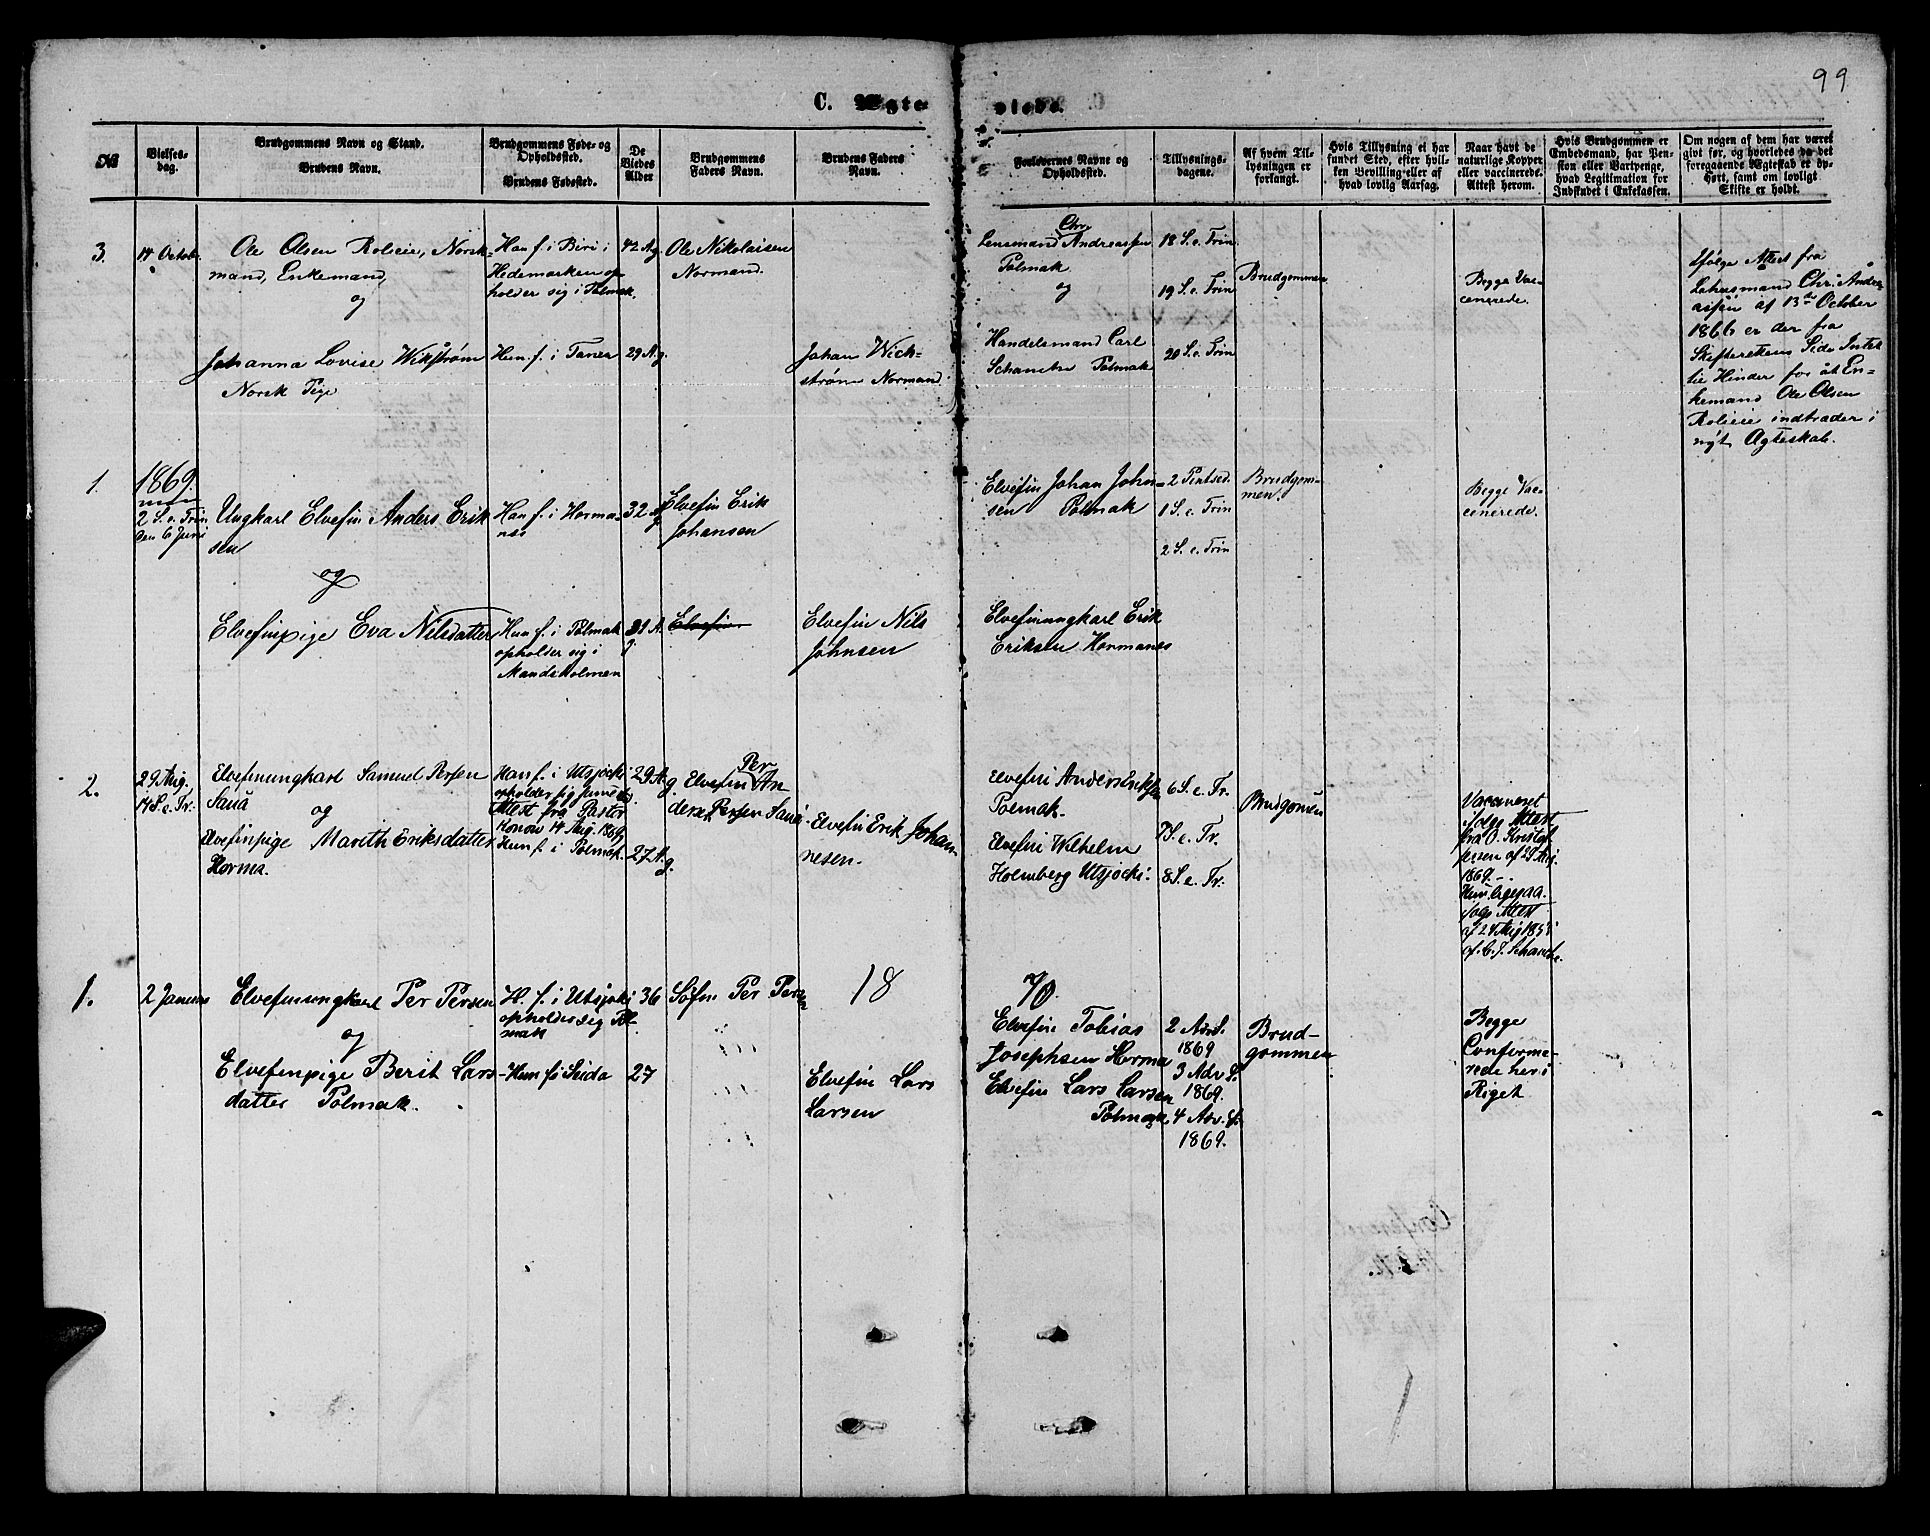 99
C. Ægte
viede.
№
Vielses-
dag.
Brudgommens Navn og Stand.
Brudens Navn.
Brudgommens Føde- og
Opholdssted.
Brudens Fødested.
De
Viedes
Alder
Brudgommens
Faders Navn.
Brudens Faders
Navn.
Forlovernes Navne og
Opholdssted.
Tillysnings-
dagene.
Af hvem Til-
lysningen er
forlangt.
Hvis Tillysning ei har
fundet Sted, efter hvil-
ken Bevilling eller af
hvad lovlig Aarsag.
Naar havt de
naturlige Kopper
eller vaccinerede.
Attest herom.
Hvis Brudgommen er
Embedsmand, har Pen-
sion eller Vartpenge,
hvad Legitimation for
Indskudet i Enkekassen.
Om nogen af dem har været
givt før, og hvorledes da det
foregaaende Ægteskab er op-
hørt, samt om lovligt
Skifte er holdt.
3.
14 Octob.
Ole Olsen Norsk-
mand, Enkemand,
og
Johanna Lovise Wikstrøm
Norsk Pige
Han f. i Biri i
Hedemarken op
holder sig i Polmak.
Hun f. i Tanen
42 A. g.
29 A. g.
Ole Nikolaisen
Normand.
Johan Wick-
strøm Normand
Chr.
Lensmand Andreassen
Polmak
og
Handelsmand Carl
Schanche Polmak
18 S. e. Trin
19 S. e. Trin
20 S. e. Trin
Brudgommen
Begge Vac-
cinerede.
Ifølge Attest fra
Lehnsmand Chr. Andre
assen af 13de October
1866 er der fra
Skifterettens Side Intet
til Hinder for at En-
kemand Ole Olsen
indtræder i
nyt Ægteskab.
1.
1869.
2 S. e. Trin
den 6 Juni
Ungkarl Elvefin Anders Erik
sen
og
Elvefinpige Eva Nilsdatter
Han f. i Horma-
næs
Hun f. i Polmak
opholder sig i
Mandsholmen
32 A. g.
31 A. g.
Elvefin Erik
Johansen
Elvefin
Elvefin Nils
Johnsen
Elvefin Johan John-
sen Polmak
Elvefinungkarl Erik
Eriksen Hormanes
2 Pintsed.
1 S. e. Trin
2 S. e. Trin
Brudgom-
men.
Begge Vac-
cinerede.
2.
29 Aug.
14 S. e. Tr.
Elvefinungkarl Samuel Persen
og
Elvefinpige Marith Eriksdatter
Horma.
Han f. i Utsjocki
opholder sig
Attest fra Pastor
14 Aug. 1869
Hun f. i Polmak.
29 A. g.
27 A. g.
Per
Elvefin An
ders Persen
Elvefin Erik Johan-
nesen.
Elvefin Anders Eriksen
Polmak.
Elvefin Wilhelm
Holmberg Utsjocki.
6 S. e. Tr.
7 S. e. Tr.
8 S. e. Tr.
Brudgomen
Vaccineret
ifølge Attest
fra O. Kristof
fersen af 29 Aug.
1869.
Hun ligesaa
ifølge Attest
af C. J. Schanche.
1.
2 Januar
Elvefinungkarl Per Persen
og
Elvefinpige Berit Lars-
datter Polmak.
H. f. i Utsjoki
opholder sig Pol
mak
Hun f. i Seida
36
27
Søfin Per Persen
18
70.
Elvefin Lars
Larsen
Elvefin Tobias
Josephsen Horma
Elvefin Lars Larsen
Polmak
2 Adv. S.
1869
3 Adv. S.
1869.
4 Adv. S.
1869.
Brud-
gommen
Begge
Conferme-
rede her i
Riget